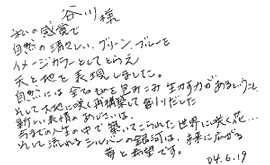 谷川様
青い感覚で
自然の清々しい、グリーン、ブルーと
イメージカラーとしてとらえ
天と地を表現しました。
自然には全てのものを包みこみ生かす力があるということ
そして大地に咲く再構築して創りだした
新しい表情のあじさいは、
今までの人の中で築いてこられた世界に咲く花…
そして流れるシルバーの銀河は、未来に広がる
夢と希望です。
04.6.19